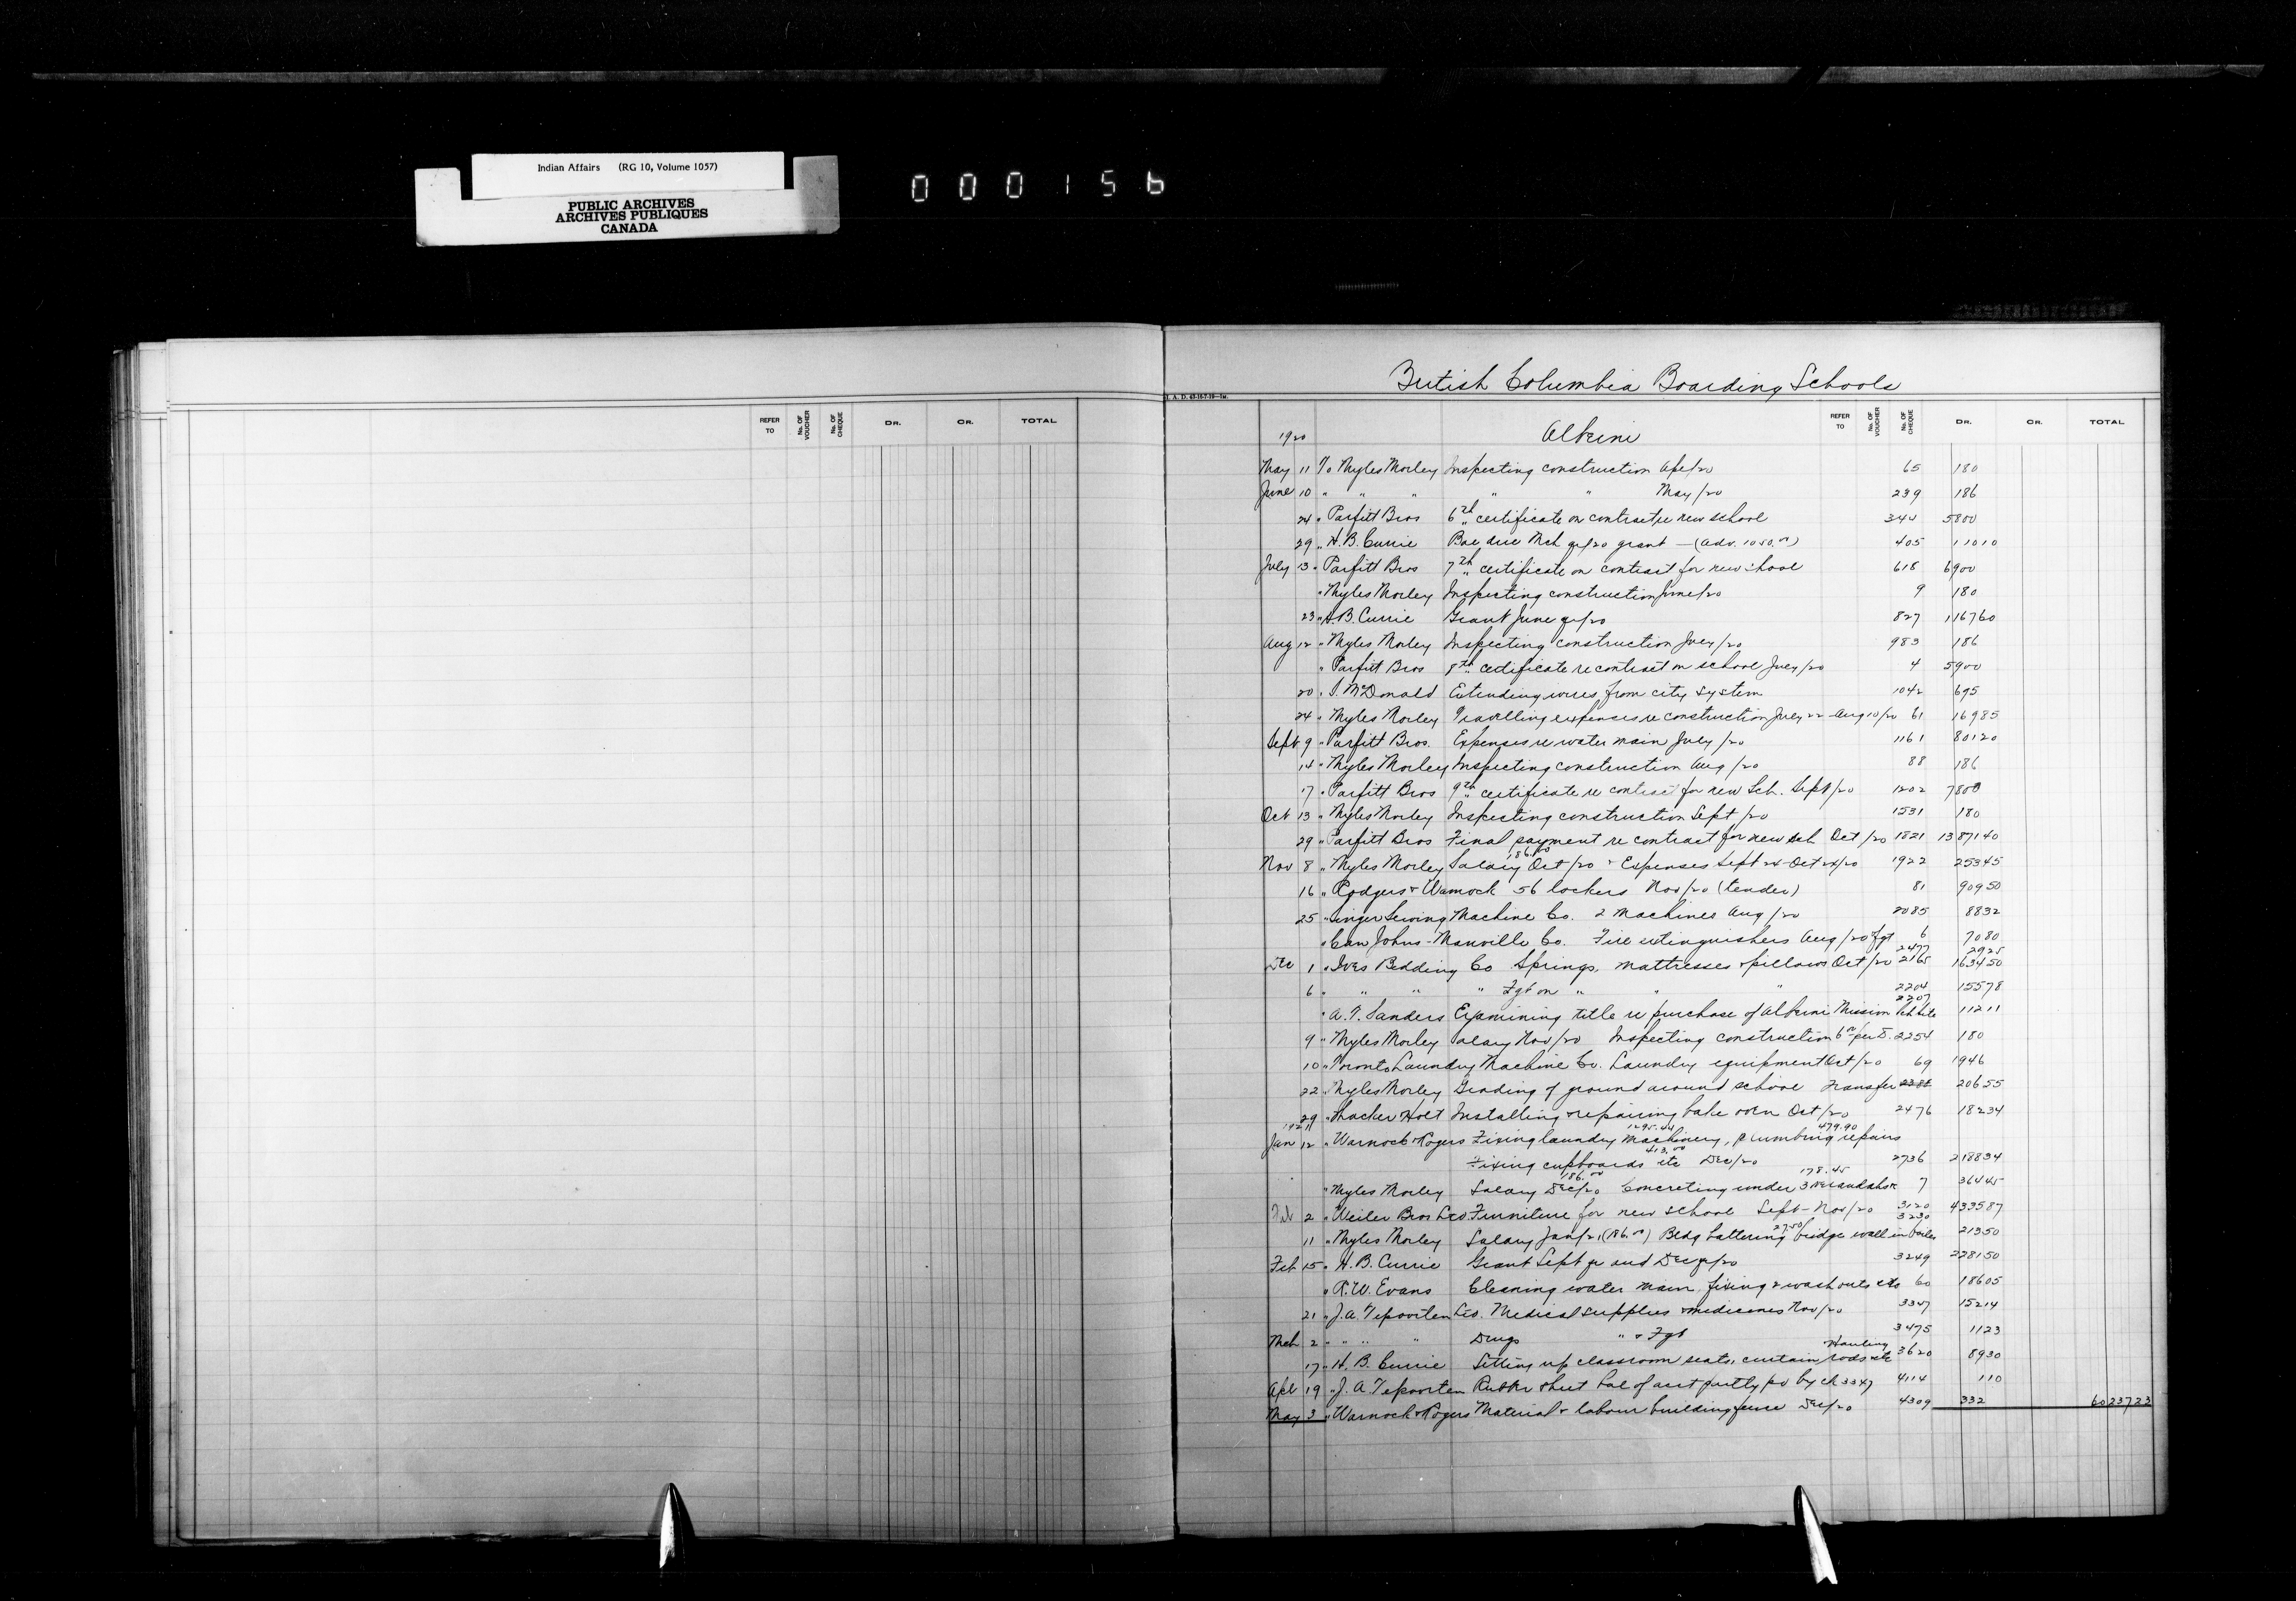 Indian Affairs (RG 10, Volume 1057)
PUBLIC ARCHIVES
ARCHIVES PUBLIQUES
CANADA
000156
British Columbia Boarding Schools
REFER TO No. OF VOUCHER No. OF CHEQUE DR. CR. TOTAL
REFER TO No. OF VOUCHER No. OF CHEQUE DR. CR. TOTAL
1920 Alberni
May 11 To Myles Morley Inspecting construction Apl/20 65 180
June 10 " " " " " May/20 239 186
24 " Parfitt Bros 6th certificate on contract re new school 344 5800
29 " H. B. Currie Bal due Mch qr/20 grant - (adv. 1050.00) 405 11010
July 13 " Parfitt Bros 7th certificate on contract for new school 618 6900
" Myles Morley Inspecting construction June/20 9 180
23 " H. B. Currie Grant June qr/20 827 116760
Aug 12 " Myles Morley Inspecting construction July/20 983 186
" Parfitt Bros 8th certificate re contract on school July/20 4 5900
20 " McDonald Extending wires from city system 1042 695
24 " Myles Morley Travelling expenses re construction July 22 - Aug 10/20 61 16985
Sept 9 " Parfitt Bros. Expenses re water main July/20 1161 80120
14 " Myles Morley Inspecting construction Aug/20 88 186
17 " Parfitt Bros 9th certificate re contract for new Sch. Sept/20 1202 7800
Oct 13 " Myles Morley Inspecting construction Sept/20 1531 180
29 " Parfitt Bros Final payment re contract for new sch Oct/20 1821 1387140
Nov 8 " Myles Morley Salary 186.00 Oct/20 + Expenses Sept 24-Oct 24/20 1922 25345
16 " Rodgers + Warnock 56 lockers Nov/20 (tender) 81 90950
25 " Singer Sewing Machine Co. 2 Machines Aug/20 2085 8832
" Can Johns-Manville Co. Fire extinguishers Aug/20 Fgt 6 7080
2477 2925
Dec 1 " Ives Bedding Co Springs, mattresses + pillows Oct/20 2165 163450
6 " " " " Fgt on " " " 2204 15578
" A. T. Sanders Examining title re purchase of Alberni Mission sch site 2207 11211
9 " Myles Morley Salary Nov/20 Inspecting construction 2254 180
10 " Toronto Laundry Machine Co. Laundry equipment Oct/20 69 1946
22 " Myles Morley Grading of ground around school Transfer 20655
29 " Thacker Holt Installing + repairing bake oven Oct/20 2476 18234
1921
Jan 12 " Warnock + Rogers Fixing laundry machinery 1295.44, plumbing repairs 479.90
Fixing cupboards etc 413.00 Dec/20 2736 218834
" Myles Morley Salary 186.00 Dec/20 Concreting under 3 verandahs 178.45 7 36445
Feb 2 " Weiler Bros Ltd Furniture for new school Sept-Nov/20 3120 433587
11 " Myles Morley Salary Jan/21 (186.00) Bldg battering 27.50 bridge wall in boiler 3230 21350
Feb 15 " H. B. Currie Grant Sept qr and Dec qr/20 3249 228150
" R. W. Evans Cleaning water main, fixing 2 washouts etc 60 18605
21 " J. A. Tepoorten Ltd. Medical supplies + medicines Nov/20 3347 15214
Mch 2 " " " " Drugs " + Fgt 3475 1123
17 " H. B. Currie Setting up classroom seats, curtain rods etc Hauling 3620 8930
Apl 19 " J. A. Tepoorten Rubber sheet bal of acct partly pd by ch 3347 4114 110
May 3 " Warnock + Rogers Material + labour building fence Dec/20 4309 332 6023723